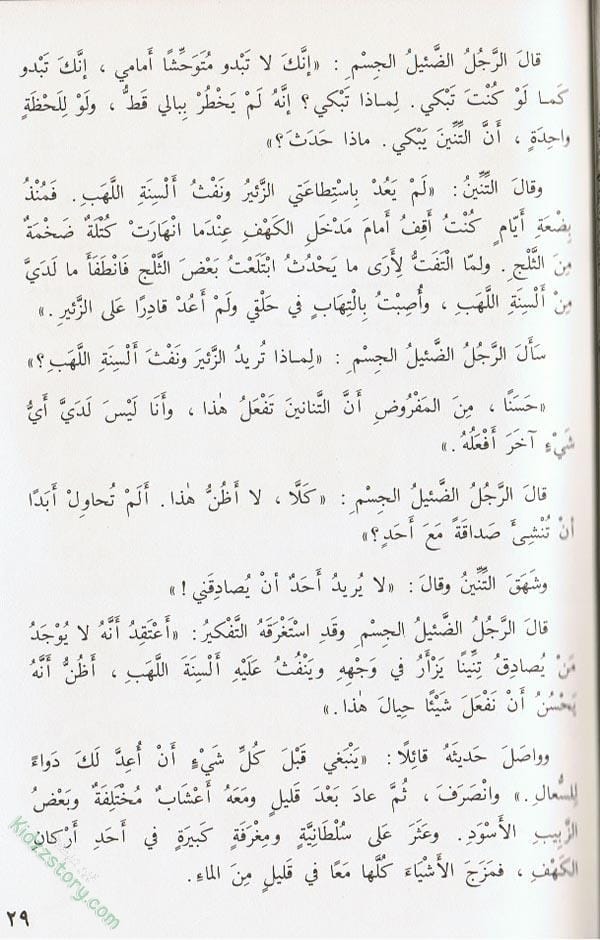 قالَ الرَّجُلُ الضَّئيلُ الجِسْمِ : «إنَّكَ لا تَبْدو مُتَوَحِّشًا أَمامي ، إنَّكَ تَبْدو
كَما لَوْ كُنْتَ تَبْكي . لِماذا تَبْكي ؟ إنَّهُ لَمْ يَخْطُرْ بِبالي قَطُّ ، ولَوْ لِلَحْظَةٍ
واحِدَةٍ ، أَنَّ التِّنِّينَ يَبْكي . ماذا حَدَثَ ؟»
وقالَ التِّنِّينُ : «لَمْ يَعُدْ بِاسْتِطاعَتي الزَّئيرُ ونَفْثُ أَلْسِنَةِ اللَّهَبِ . فَمُنْذُ
بِضْعَةِ أَيّامٍ كُنْتُ أَقِفُ أَمامَ مَدْخَلِ الكَهْفِ عِنْدَما انْهارَتْ كُتْلَةٌ ضَخْمَةٌ
مِنَ الثَّلْجِ . ولَمّا الْتَفَتُّ لِأَرَى ما يَحْدُثُ ابْتَلَعْتُ بَعْضَ الثَّلْجِ فَانْطَفَأَ ما لَدَيَّ
مِنْ أَلْسِنَةِ اللَّهَبِ ، وأُصِبْتُ بِالْتِهابٍ في حَلْقي ولَمْ أَعُدْ قادِرًا عَلى الزَّئيرِ .»
سَأَلَ الرَّجُلُ الضَّئيلُ الجِسْمِ : «لِماذا تُريدُ الزَّئيرَ ونَفْثَ أَلْسِنَةِ اللَّهَبِ ؟»
«حَسَنًا ، مِنَ المَفْروضِ أَنَّ التَّنانينَ تَفْعَلُ هٰذا ، وأَنا لَيْسَ لَدَيَّ أَيُّ
شَيْءٍ آخَرَ أَفْعَلُهُ .»
قالَ الرَّجُلُ الضَّئيلُ الجِسْمِ : «كَلَّا ، لا أَظُنُّ هٰذا . أَلَمْ تُحاوِلْ أَبَدًا
أَنْ تُنْشِئَ صَداقَةً مَعَ أَحَدٍ ؟»
وشَهَقَ التِّنِّينُ وقالَ : «لا يُريدُ أَحَدٌ أَنْ يُصادِقَني !»
قالَ الرَّجُلُ الضَّئيلُ الجِسْمِ وقَدِ اسْتَغْرَقَهُ التَّفْكيرُ : «أَعْتَقِدُ أَنَّهُ لا يُوْجَدُ
مَنْ يُصادِقُ تِنِّينًا يَزْأَرُ في وَجْهِهِ ويَنْفُثُ عَلَيْهِ أَلْسِنَةَ اللَّهَبِ ، أَظُنُّ أَنَّهُ
يَحْسُنُ أَنْ نَفْعَلَ شَيْئًا حِيالَ هٰذا .»
وواصَلَ حَديثَهُ قائِلًا : «يَنْبَغي قَبْلَ كُلِّ شَيْءٍ أَنْ أُعِدَّ لَكَ دَواءً
لِلسُّعالِ .» وانْصَرَفَ ، ثُمَّ عادَ بَعْدَ قَليلٍ ومَعَهُ أَعْشابٌ مُخْتَلِفَةٌ وبَعْضُ
الزَّبيبِ الأَسْوَدِ . وعَثَرَ عَلى سُلْطانِيَّةٍ ومِغْرَفَةٍ كَبيرَةٍ في أَحَدِ أَرْكانِ
الكَهْفِ ، فمَزَجَ الأَشْياءَ كُلَّها مَعًا في قَليلٍ مِنَ الماءِ .
٢٩
Kidzzstory.com